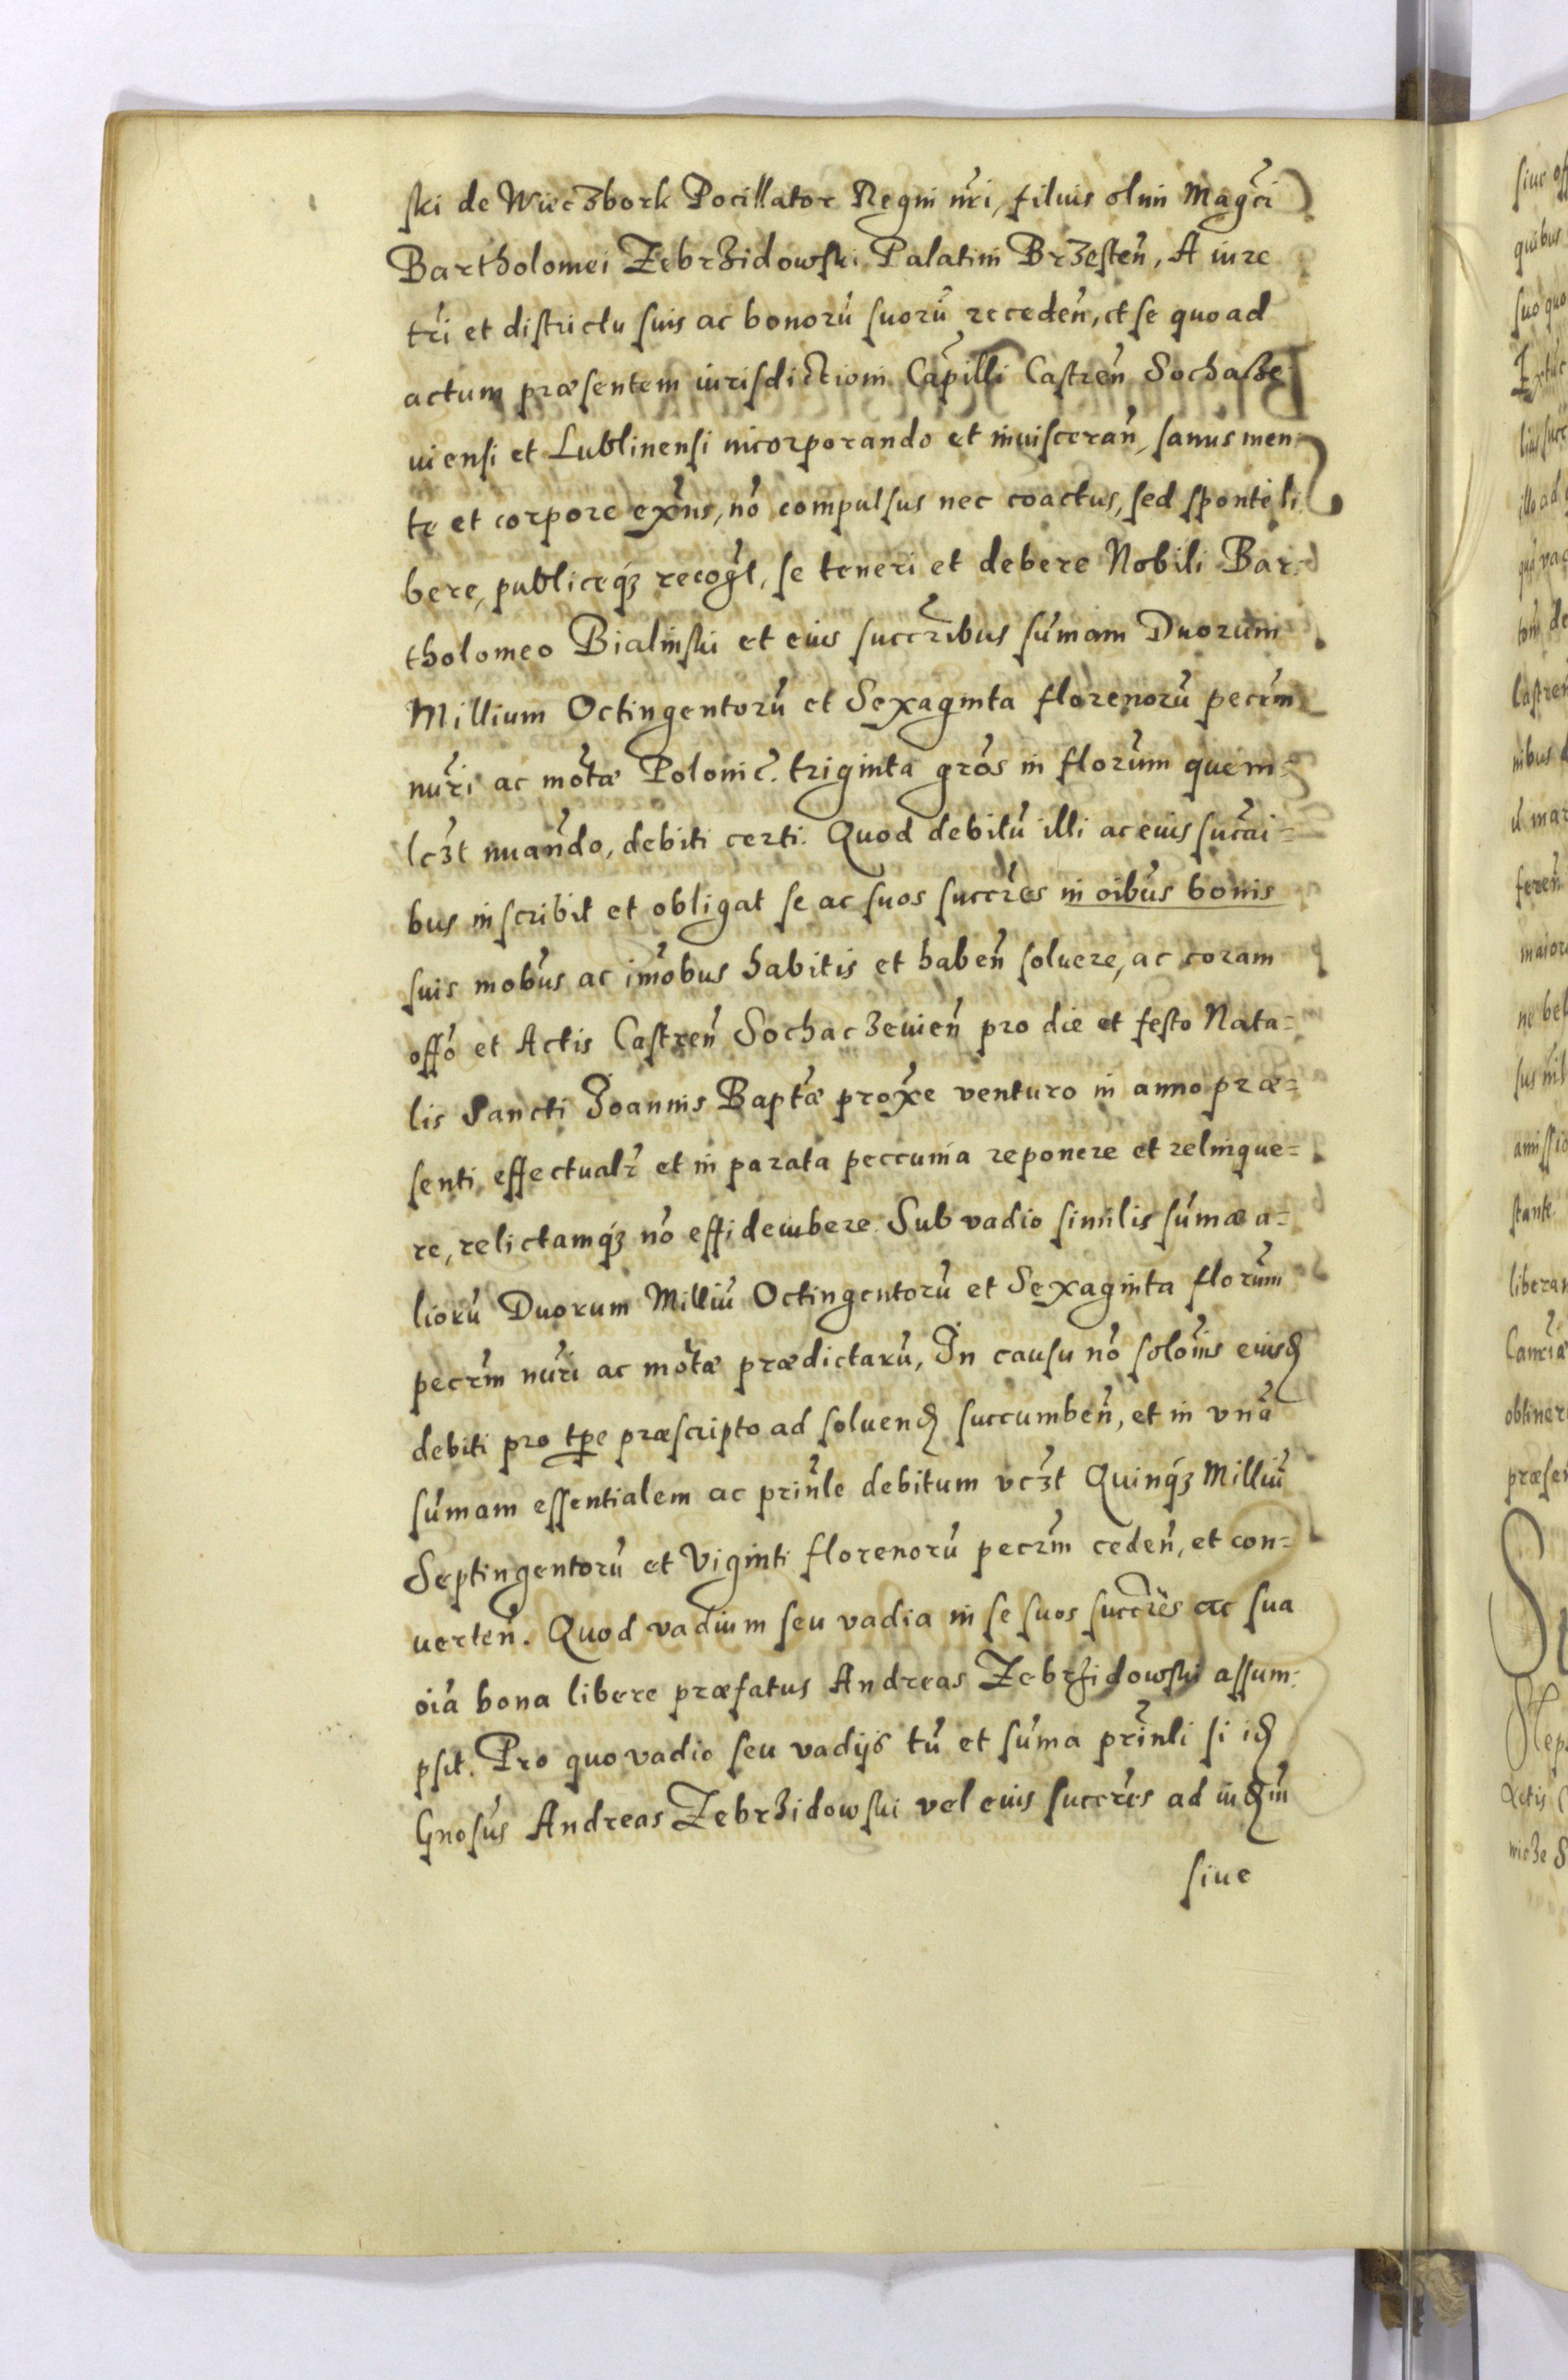 ski de Wieczbork Pocillator Regni nr̃i, filius olim Magc̃i
Bartholomei Zebrzidowski Palatini Brzesteñ, A iure
tr̃i et districtu suis ac bonorũ suorũ recedeñ, et se quo ad
actum præsentem iurisdictioni Cap̃illi Castreñ Sochacze
uiensi et Lublinensi incorporando et inuiscerañ, sanus men
te et corpore ex̃ns, nõ compulsus nec coactus, sed sponte li
bere, publiceqꝫ recog̃t, se teneri et debere Nobili Bar
tholomeo Bialinski et eius succr̃ibus sum̃am Duorum
Millium Octingentorũ et Sexaginta florenorũ pecr̃m
nur̃i ac mõtæ Polonic̃. triginta grõs in florũm quem
lcꝫt nuañdo, debiti certi. Quod debitũ illi ac eius sucr̃i=
bus inscribit et obligat se ac suos succr̃es in oĩbus bonis
suis mobũs ac im̃obus habitis et habeñ soluere, ac coram
offõ et Actis Castreñ Sochaczeuieñ pro die et festo Nata=
lis Sancti Joannis Bapt̃æ prox̃e venturo in anno præ=
senti, effectualr̃ et in parata peccunia reponere et relinque=
re, relictamqꝫ nõ effideiubere. Sub vadio similis sum̃æ a=
liorũ Duorum Milliũ Octingentorũ et Sexaginta florũm
pecr̃m nur̃i ac mõtæ prædictarũ, In causu nõ solõnis eiusꝺ
debiti pro tpe præscripto ad soluenꝺ succumbeñ, et in vnã
sum̃am essentialem ac prinle debitum vcꝫt Quinqꝫ Milliũ
Septingentorũ et Viginti florenorũ pecr̃m cedeñ, et con=
uerteñ. Quod vadium seu vadia in se suos succr̃es ac sua
oĩa bona libere præfatus Andreas Zebrzidowski assum
psit. Pro quo vadio seu vadijs tũ et sum̃a prinli si iꝺ
Gnosus Andreas Zebrzidowski vel eius succr̃es ad iuꝺm
siue